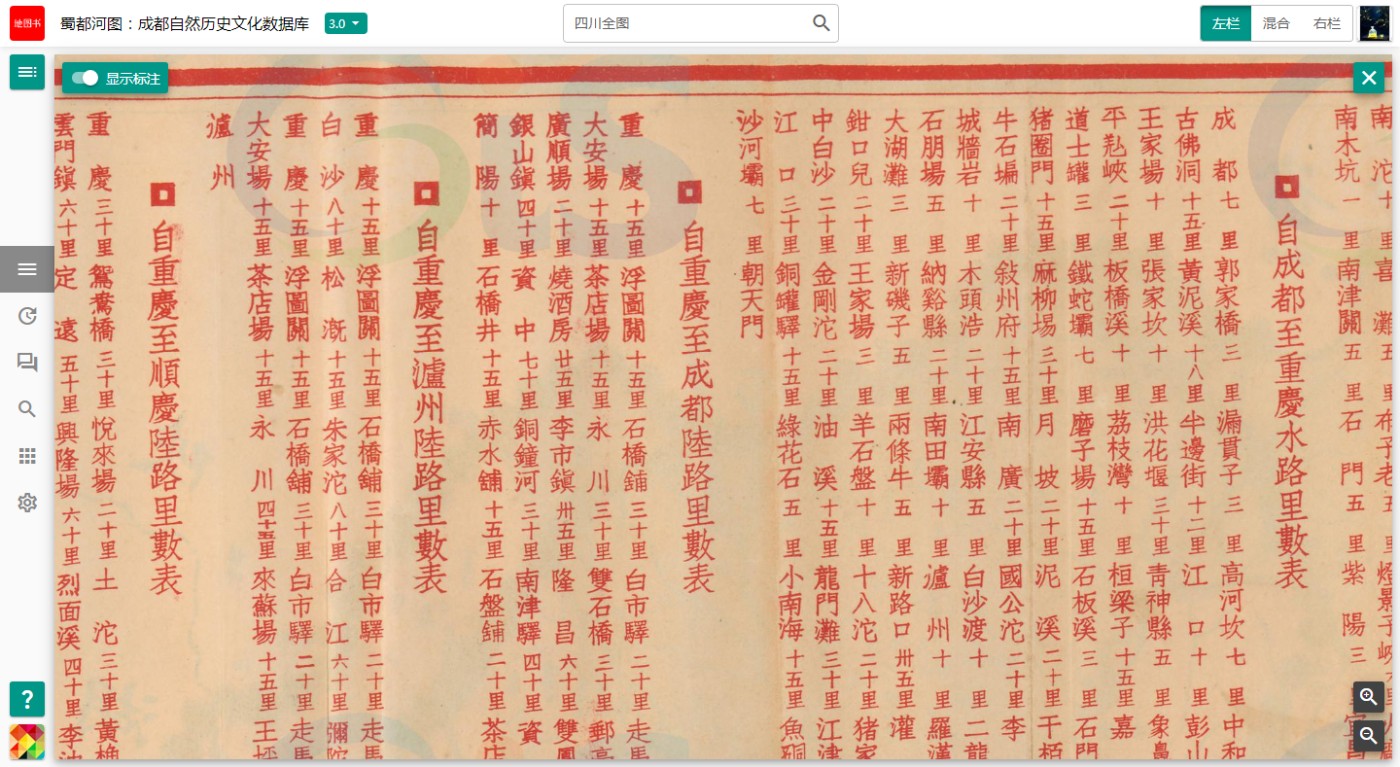 地图书
蜀都河图：成都自然历史文化数据库
3.0
四川全图
左栏
混合
右栏
显示标注
南木坑一里南津關五里石門五里紫陽三
自成都至重慶水路里數表
成都七里郭家橋三里漏貫子三里高河坎七里中和
古佛洞十五里黃泥溪十八里半邊街十二里江口十里彭山
王家場十里張家坎十里洪花堰三十里青神縣五里象鼻
平羌峽二十里板橋溪十里荔枝灣十里桓梁子十五里嘉
道士罐三里鐵蛇壩七里磨子場十五里石板溪三里石門
猪圈門十五里麻柳場三十里月坡二十里泥溪二十里干栢
牛石堀二十里敍州府十五里南廣二十里國公沱二十里李
城牆岩十里木頭浩二十里江安縣五里白沙渡十里二龍
石朋場五里納谿縣二十里南田壩十里瀘州十里羅漢
大湖灘三里新磯子五里兩條牛五里新路口卅五里灌
鉗口兒二十里王家場三里羊石盤十里十八沱二十里猪家
中白沙二十里金剛沱二十里油溪十五里龍門灘三十里江津
江口三十里銅罐驛十五里綠花石五里小南海十五里魚硐
沙河壩七里朝天門
自重慶至成都陸路里數表
重慶十五里浮圖關十五里石橋舖三十里白市驛二十里走馬
大安場十五里茶店場十五里永川三十里雙石橋三十里郵亭
廣順場二十里燒酒房廿五里李市鎮卅五里隆昌六十里雙鳳
銀山鎮四十里資中七十里銅鐘河三十里南津驛四十里資
簡陽十里石橋井十五里赤水舖十五里石盤舖二十里茶店
自重慶至瀘州陸路里數表
重慶十五里浮圖關十五里石橋舖三十里白市驛二十里走馬
白沙八十里松漑十五里朱家沱八十里合江六十里彌陀
重慶十五里浮圖關十五里石橋舖三十里白市驛二十里走馬
大安場十五里茶店場十五里永川四十五里來蘇場十五里王坪
瀘州
自重慶至順慶陸路里數表
重慶三十里鴛鴦橋三十里悅來場二十里土沱三十里黃桷
雲門鎮六十里定遠五十里興隆場六十里烈面溪四十里李